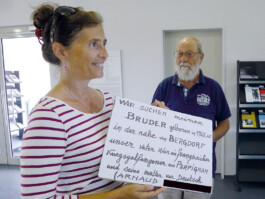 WIR SUCHEN meinen
BRUDER geboren in
in der nähe von BERGDORF
unser Vater war ein französischer
Kriegsgefangener aus PERPIGNAN
und seine mutter war Deutsch
(ARNAUD